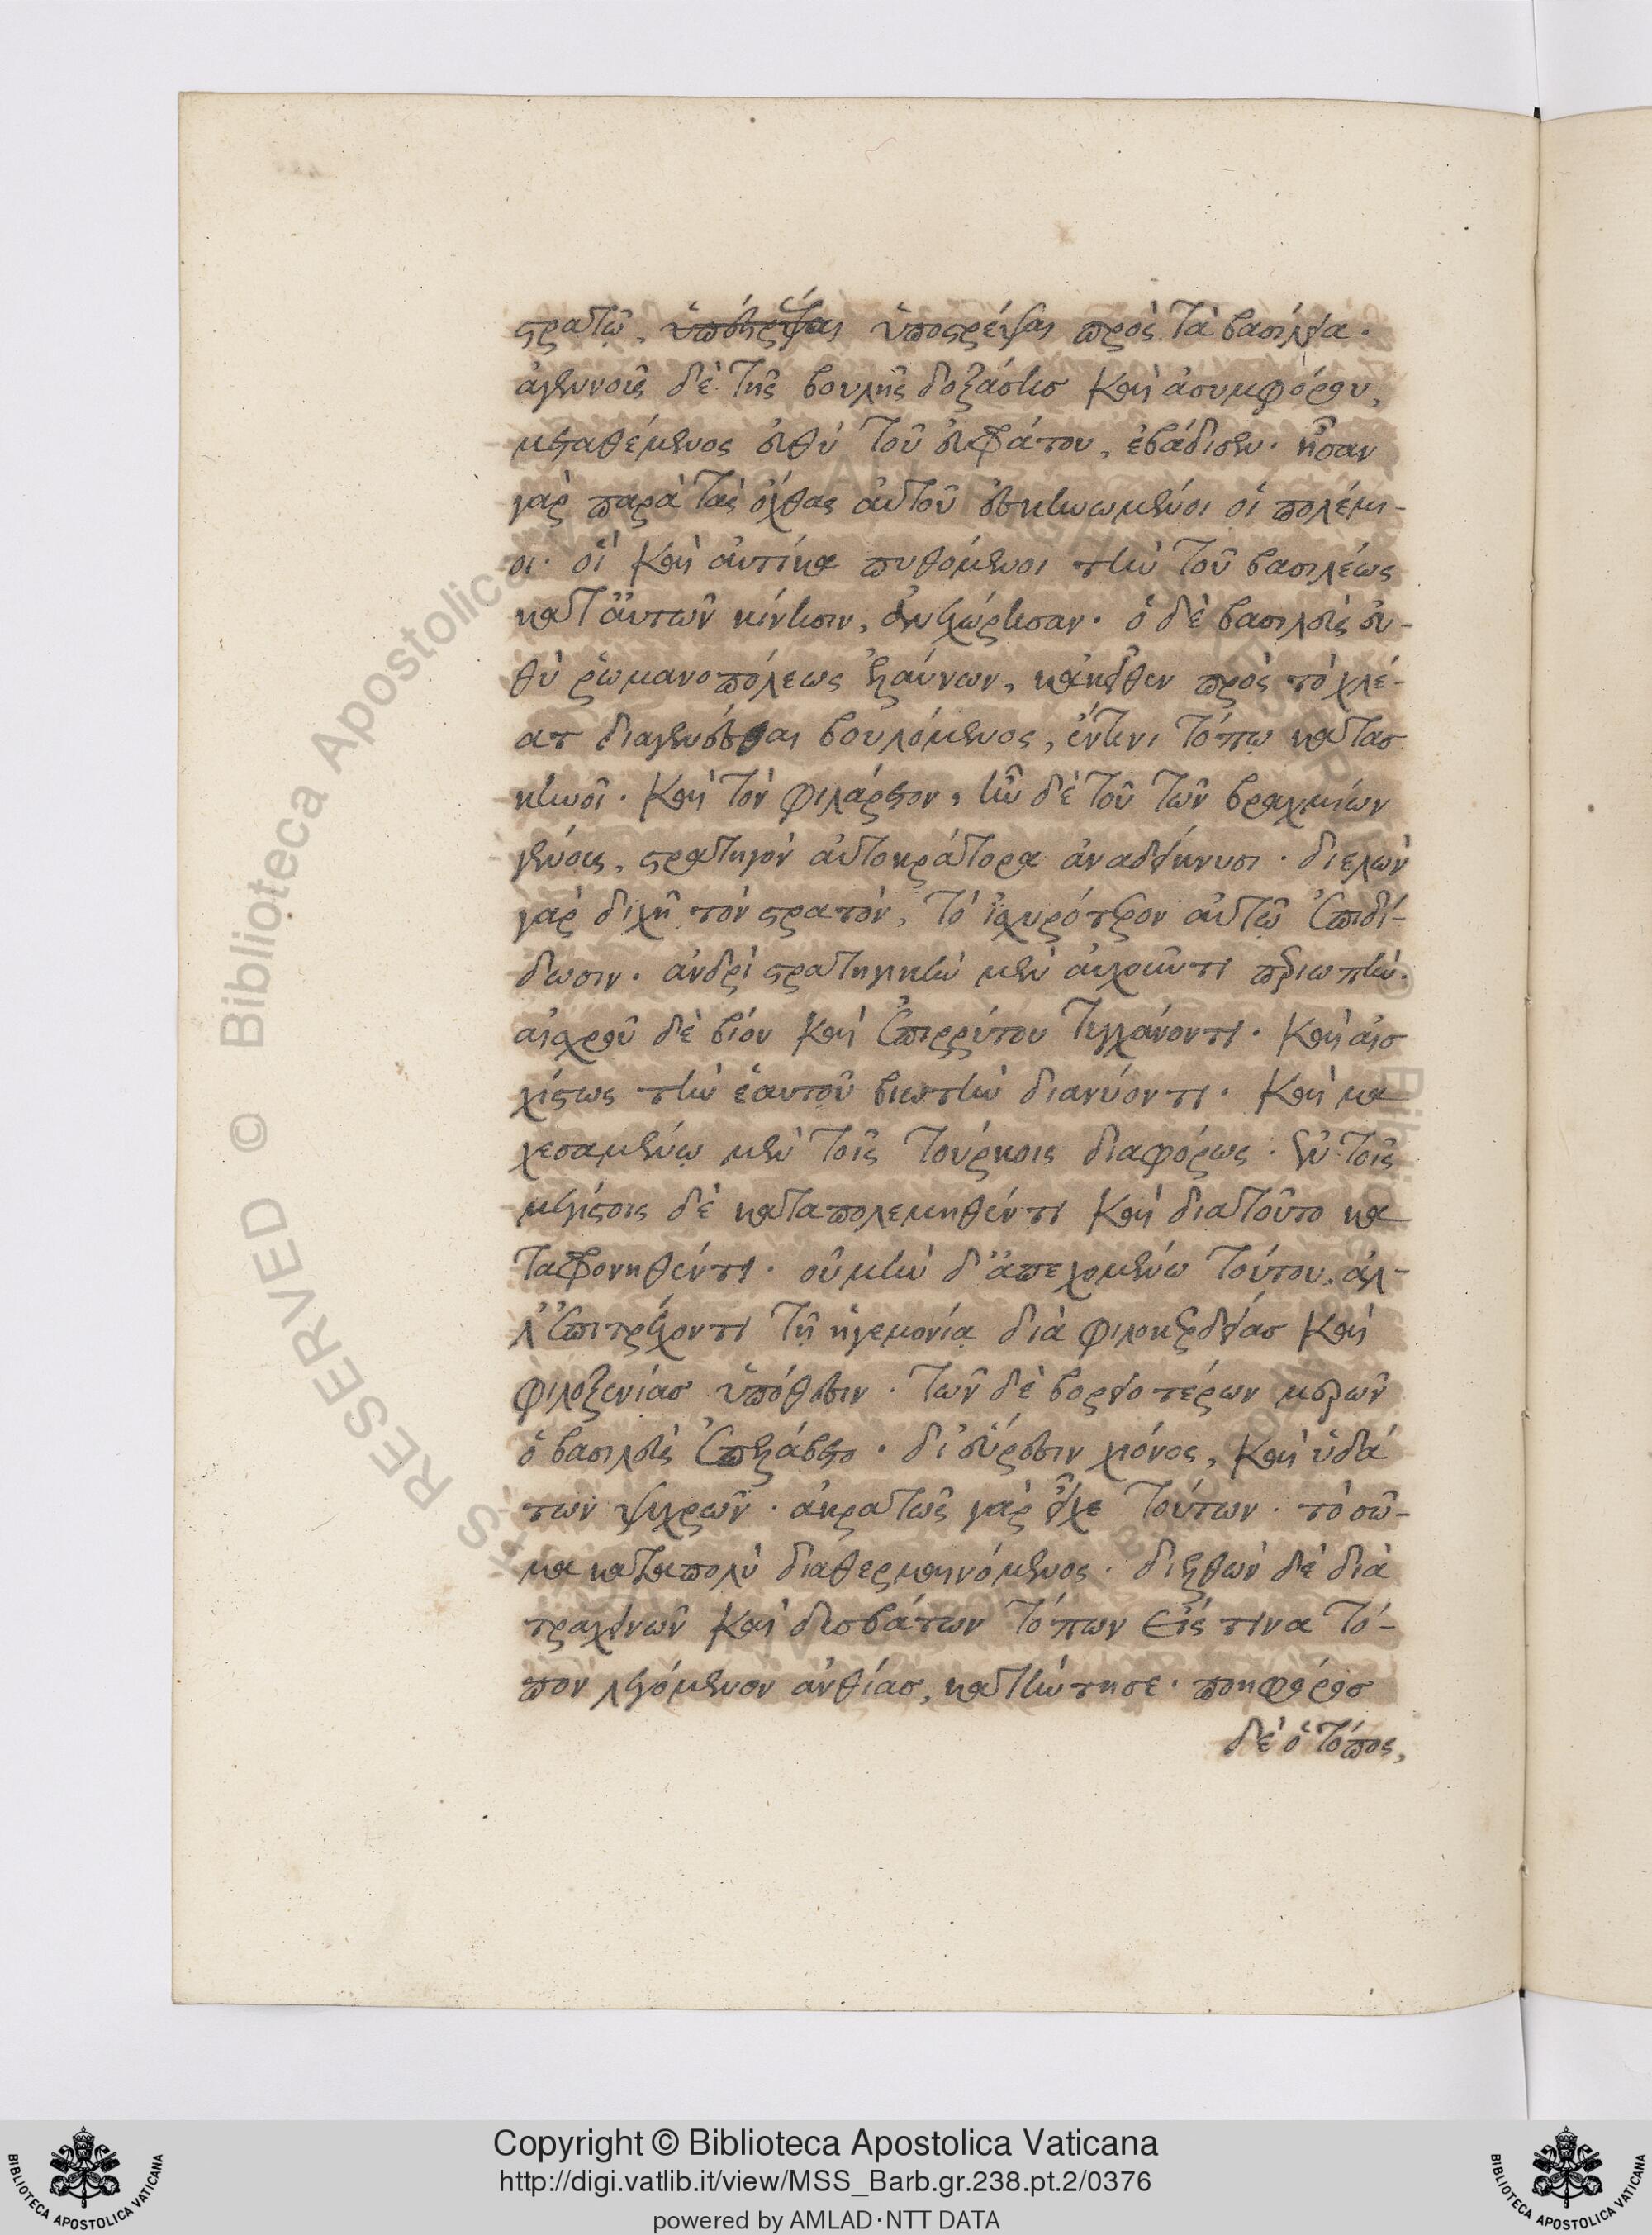 στρατῷ, ὑποστρέψαι ὑποστρέψαι πρὸς τὰ βασίλεια.
ἀγεννοῦς δὲ τῆς βουλῆς δοξάσης καὶ ἀσυμφόρου,
μεταθέμενος εὐθὺ τοῦ εὐφράτου, ἐβάδισεν. ἦσαν
γὰρ παρὰ τὰς ὄχθας αὐτοῦ ἐσκηνωμένοι οἱ πολέμι-
οι. οἳ καὶ αὐτίκα πυθόμενοι τὴν τοῦ βασιλέως
κατ' αὐτῶν κίνησιν, ἀνεχώρησαν. ὁ δὲ βασιλεὺς εὐ-
θὺ ῥωμανοπόλεως ἐλαύνων, κἀκεῖθεν πρὸς τὸ χλέ-
ατ διαγενέσθαι βουλόμενος, ἔν τινι τόπῳ κατασ
κηνοῖ. καὶ τὸν φιλάρετον, ἦν δὲ τοῦ τῶν βραχμίων
γένους, στρατηγὸν αὐτοκράτορα ἀναδείκνυσι. διελὼν
γὰρ διχῇ τὸν στρατὸν, τὸ ἰσχυρότερον αὐτῷ ἐπιδί-
δωσιν. ἀνδρὶ στρατηγικὴν μὲν αὐχοῦντι περιωπὴν.
αἰσχροῦ δὲ βίον καὶ ἐπιρρύτου τυγχάνοντι. καὶ αἰσ
χίστως τὴν ἑαυτοῦ βιωτὴν διανύοντι. καὶ μα
χεσαμένῳ μὲν τοῖς τούρκοις διαφόρως. ἐν τοῖς
μεγίστοις δὲ καταπολεμηθέντι καὶ διατοῦτο κα
ταφρονηθέντι. οὐ μὴν δ' ἀπεχομένω τούτου, ἀλ-
λ' ἐπιτρέχοντι τῇ ἡγεμονίᾳ διὰ φιλοκερδείας καὶ
φιλοξενίας ὑπόθεσιν. τῶν δὲ βορειοτέρων μερῶν
ὁ βασιλεὺς ἐπελάβετο. δι' εὕρεσιν χιόνος, καὶ ὑδά
των ψυχρῶν. ἀκρατῶς γὰρ εἶχε τούτων. τὸ σῶ-
μα καταπολὺ διαθερμαινόμενος. διελθὼν δὲ διὰ
τραχεινῶν καὶ δυσβάτων τόπων εἴς τινα τό-
πον λεγόμενον ἀνθίας, κατήντησε. ποηφόρος
δὲ ὁ τόπος,
RESERVED © Biblioteca Apostolica
Copyright © Biblioteca Apostolica Vaticana
http://digi.vatlib.it/view/MSS_Barb.gr.238.pt.2/0376
powered by AMLAD·NTT DATA
BIBLIOTECA APOSTOLICA VATICANA
BIBLIOTECA APOSTOLICA VATICANA